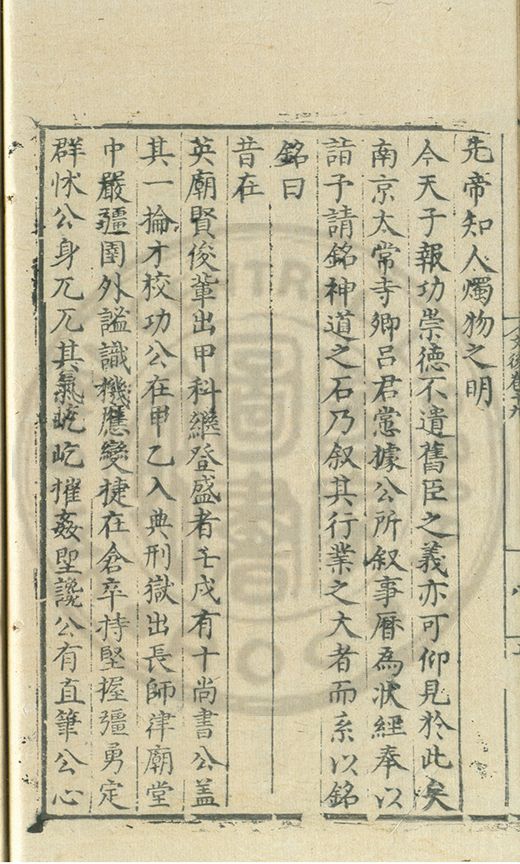 先帝知人燭物之明
今天子報功崇德不遺舊臣之義亦可仰見於此矣
南京太常寺卿呂君㦂據公所叙事曆為狀經奉以
詣予請銘神道之石乃叙其行業之大者而系以銘
銘曰
昔在
英廟賢俊輩出甲科繼登盛者壬戌有十尚書公盖
其一掄才校功公在甲乙入典刑獄出長師律廟堂
中嚴疆圉外謐識機應變捷在倉卒持堅握彊勇定
群怵公身兀兀其氣屹屹摧姦堲讒公有直筆公心